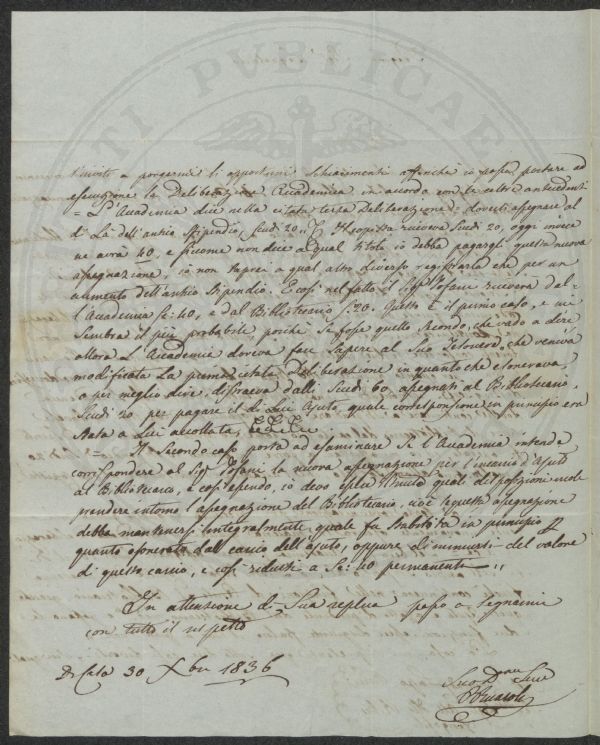 l'invito a porgermi li opportuni schiarimenti affinchè io possa portare ad
esecuzione la Deliberazione Accademica in accordo con le altre antecedenti
= L'Accademia dice nella citata terza Deliberazione = doversi assegnare al
di Là dell'antico Stipendio, scudi 20 .. Il copista riceveva Scudi 20, oggi invece
ne avrà 40, e siccome non dice a qual titolo io debba pagargli questa nuova
assegnazione, io non saprei a qual altro diverso registrarla che per un
aumento dell'antico Stipendio. E così nel fatto il Sigr Tofani riceverà dal=
l'Accademia S: 40, e dal Bibliotecario S. 20. Questo è il primo caso, e mi
Sembra il più probabile poichè Se fosse quello secondo, che vado a dire
allora L'Accademia doveva fare sapere al Suo Tesoriere, che veniva
modificata La Deliberazione in quanto che esonerava,
o per meglio dire, distraeva dalli Scudi 60 assegnati al Bibliotecario
Scudi 20 per pagare il di Lui Ajuto, quale corresponsione in principio era
Stata a Lui accollata,
= Il Secondo caso porta ad esaminare Se l'Accademia intende
corrispondere al Sigr Tofani la nuova assegnazione per l'incarico d'Ajuto
al Bibliotecario, e così essendo, io devo quale disposizione vuole
prendere intorno l'assegnazione del Bibliotecario, cioè Se questa assegnazione
debba mantenersi integralmente quale fu Stabilita in principio
quanto esonerato dall carico dell'ajuto, oppure diminuirsi del valore
di questo carico, e così ridursi a Sc: 40 permanenti ,,
In attenzione di Sua replica passo a segnarmi
con tutto il rispetto
Di Casa 30 Xbre 1836
PUBLICAE